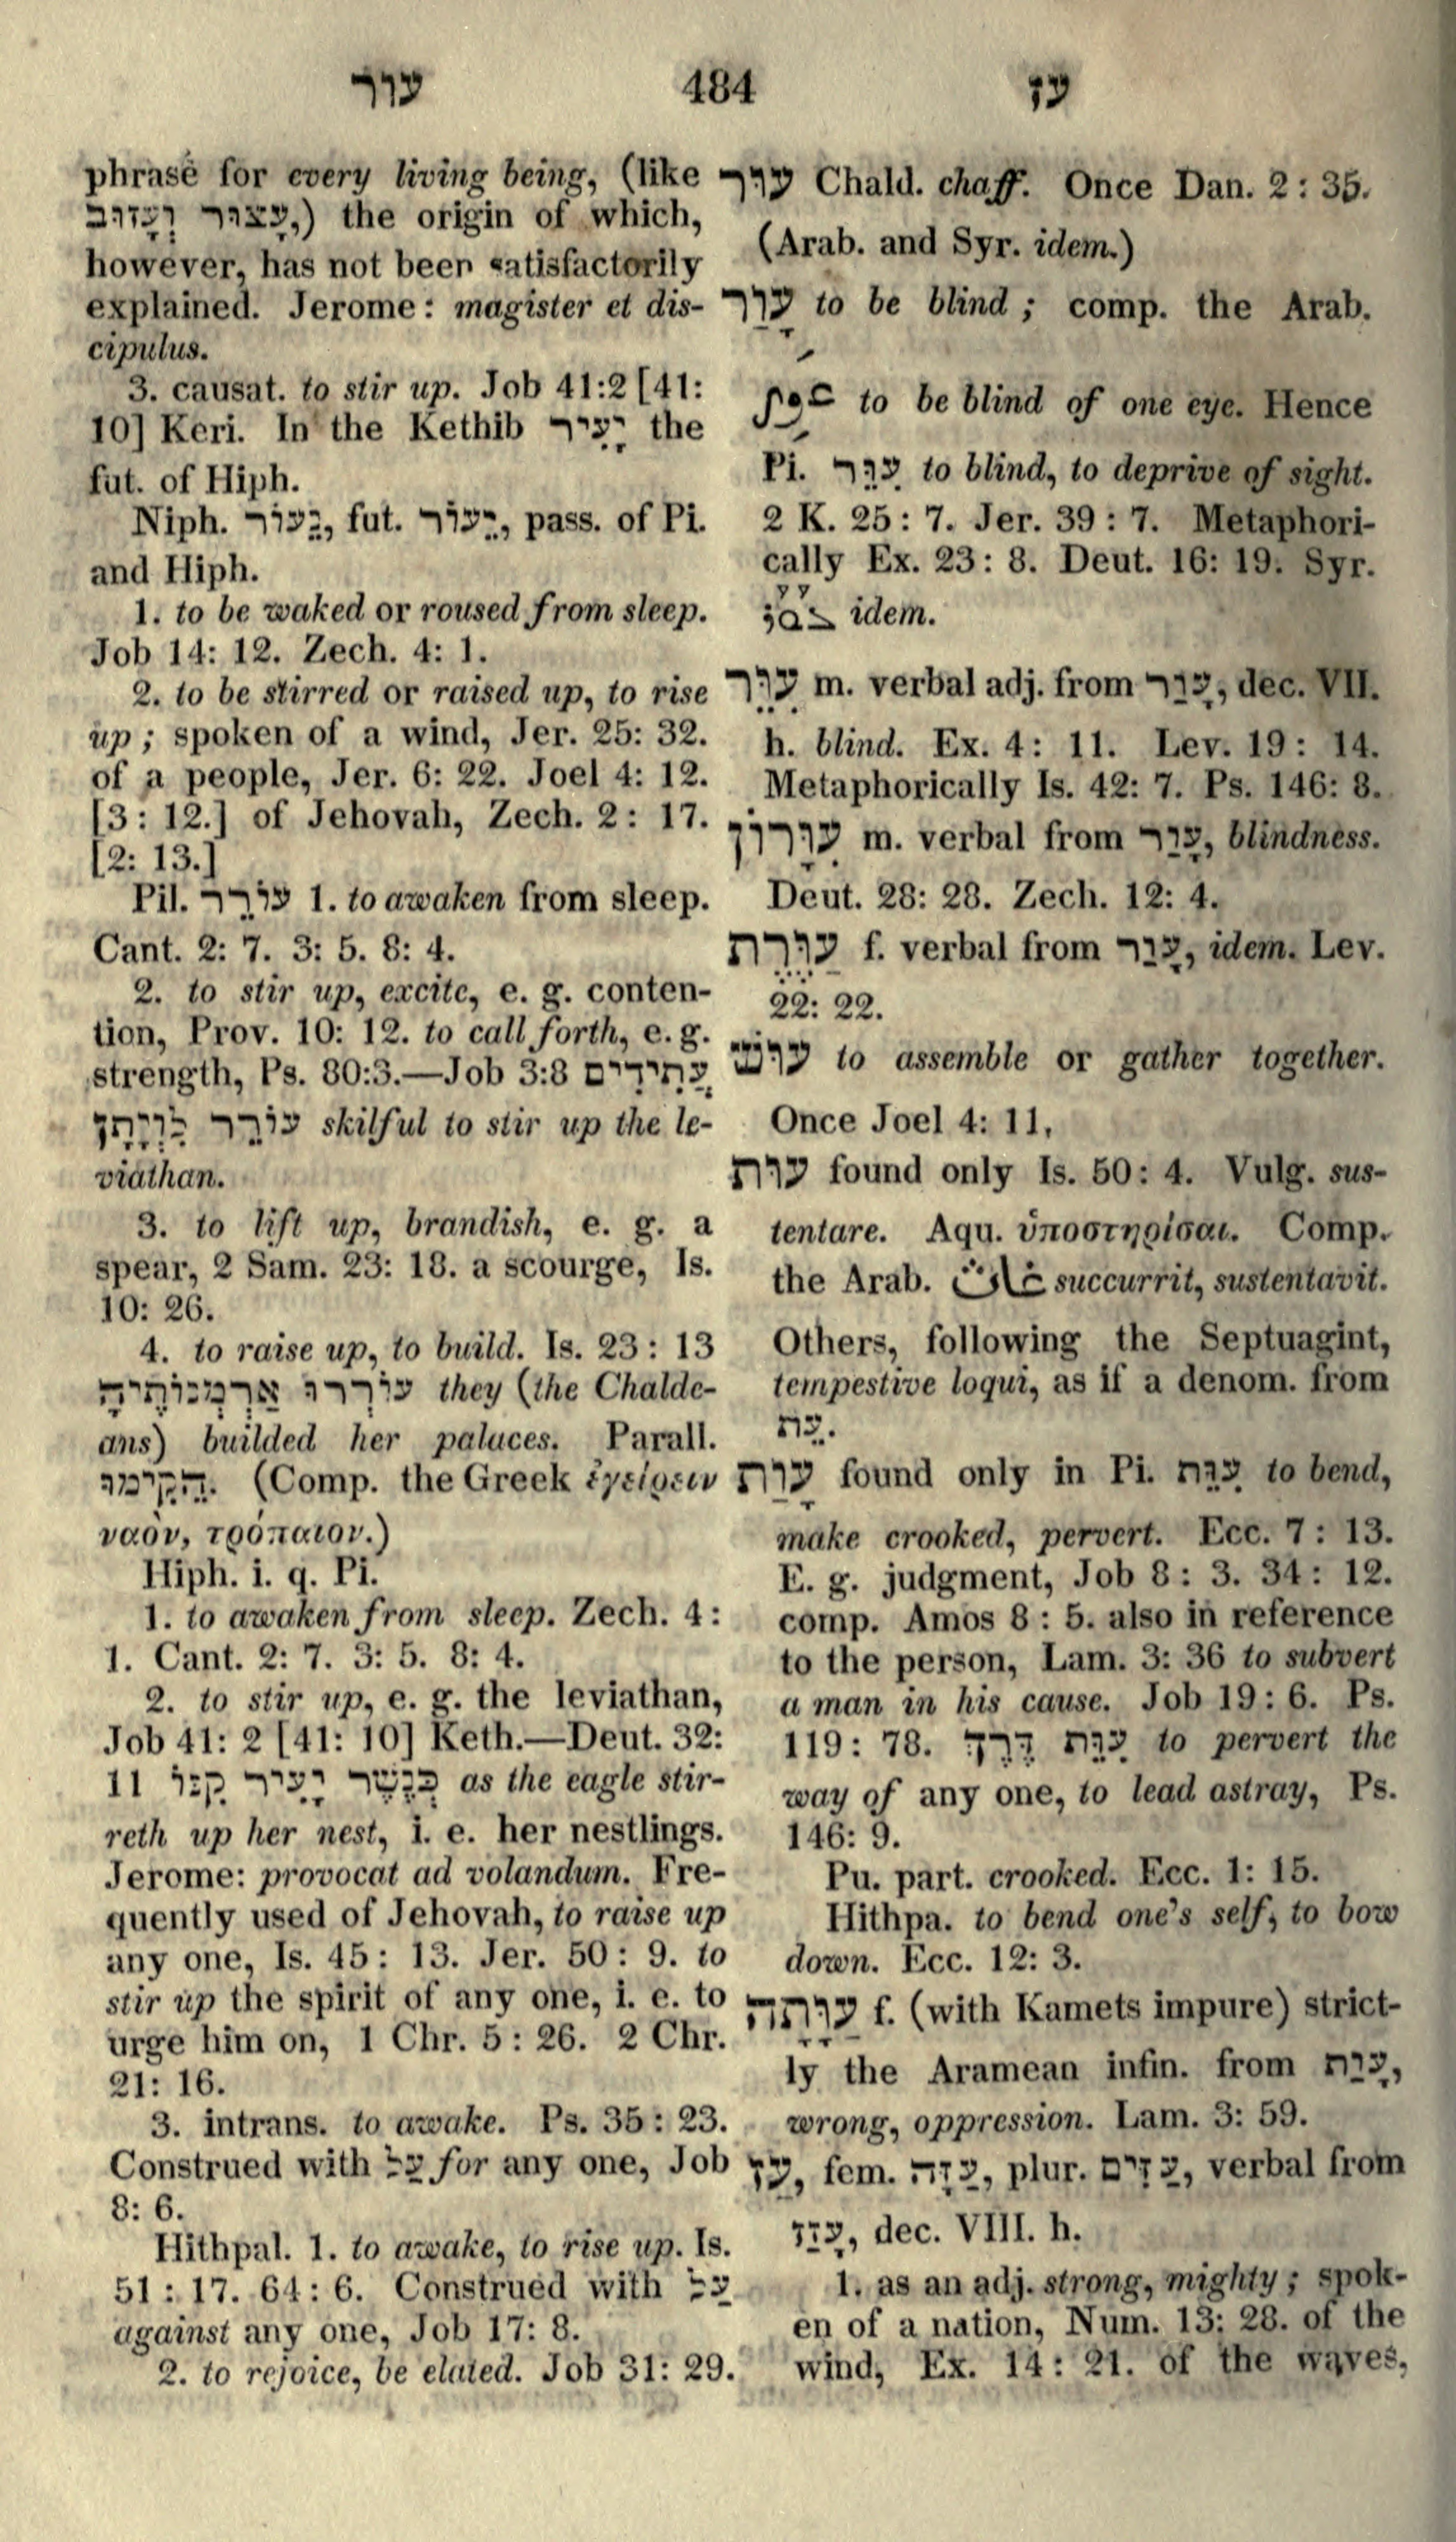 עור 484 עז
phrase for every living being, (like
עָצוּר וְעָזוּב,) the origin of which,
however, has not been satisfactorily
explained. Jerome: magister et dis-
cipulus.
3. causat. to stir up. Job 41:2 [41:
10] Keri. In the Kethib יָעִיר the
fut. of Hiph.
Niph. נֵעוֹר, fut. יֵעוֹר, pass. of Pi.
and Hiph.
1. to be waked or roused from sleep.
Job 14: 12. Zech. 4: 1.
2. to be stirred or raised up, to rise
up; spoken of a wind, Jer. 25: 32.
of a people, Jer. 6: 22. Joel 4: 12.
[3: 12.] of Jehovah, Zech. 2: 17.
[2: 13.]
Pil. עוֹרֵר 1. to awaken from sleep.
Cant. 2: 7. 3: 5. 8: 4.
2. to stir up, excite, e. g. conten-
tion, Prov. 10: 12. to call forth, e. g.
strength, Ps. 80:3.—Job 3:8 עֲתִידִים
עוֹרֵר לִוְיָתָן skilful to stir up the le-
viathan.
3. to lift up, brandish, e. g. a
spear, 2 Sam. 23: 18. a scourge, Is.
10: 26.
4. to raise up, to build. Is. 23: 13
עוֹרְרוּ אַרְמְנוֹתֶיהָ they (the Chalde-
ans) builded her palaces. Parall.
הֵקִימוּ. (Comp. the Greek ἐγείρειν
ναὸν, τρόπαιον.)
Hiph. i. q. Pi.
1. to awaken from sleep. Zech. 4:
1. Cant. 2: 7. 3: 5. 8: 4.
2. to stir up, e. g. the leviathan,
Job 41: 2 [41: 10] Keth.—Deut. 32:
11 כְּנֶשֶׁר יָעִיר קִנּוֹ as the eagle stir-
reth up her nest, i. e. her nestlings.
Jerome: provocat ad volandum. Fre-
quently used of Jehovah, to raise up
any one, Is. 45: 13. Jer. 50: 9. to
stir up the spirit of any one, i. e. to
urge him on, 1 Chr. 5: 26. 2 Chr.
21: 16.
3. intrans. to awake. Ps. 35: 23.
Construed with עַל for any one, Job
8: 6.
Hithpal. 1. to awake, to rise up. Is.
51: 17. 64: 6. Construed with עַל
against any one, Job 17: 8.
2. to rejoice, be elated. Job 31: 29.
עוּר Chald. chaff. Once Dan. 2: 35.
(Arab. and Syr. idem.)
עָוַר to be blind; comp. the Arab.
عَوِرَ to be blind of one eye. Hence
Pi. עִוֵּר to blind, to deprive of sight.
2 K. 25: 7. Jer. 39: 7. Metaphori-
cally Ex. 23: 8. Deut. 16: 19. Syr.
idem.
עִוֵּר m. verbal adj. from עָוַר, dec. VII.
h. blind. Ex. 4: 11. Lev. 19: 14.
Metaphorically Is. 42: 7. Ps. 146: 8.
עִוָּרוֹן m. verbal from עָוַר, blindness.
Deut. 28: 28. Zech. 12: 4.
עַוֶּרֶת f. verbal from עָוַר, idem. Lev.
22: 22.
עוּשׁ to assemble or gather together.
Once Joel 4: 11,
עוּת found only Is. 50: 4. Vulg. sus-
tentare. Aqu. ὑποστηρίσαι. Comp.
the Arab. غاث succurrit, sustentavit.
Others, following the Septuagint,
tempestive loqui, as if a denom. from
עֵת.
עָוַת found only in Pi. עִוֵּת to bend,
make crooked, pervert. Ecc. 7: 13.
E. g. judgment, Job 8: 3. 34: 12.
comp. Amos 8: 5. also in reference
to the person, Lam. 3: 36 to subvert
a man in his cause. Job 19: 6. Ps.
119: 78. עִוֵּת דֶּרֶךְ to pervert the
way of any one, to lead astray, Ps.
146: 9.
Pu. part. crooked. Ecc. 1: 15.
Hithpa. to bend one's self, to bow
down. Ecc. 12: 3.
עַוָּתָה f. (with Kamets impure) strict-
ly the Aramean infin. from עָוַת,
wrong, oppression. Lam. 3: 59.
עַז, fem. עַזָּה, plur. עַזִּים, verbal from
עָזַז, dec. VIII. h.
1. as an adj. strong, mighty; spok-
en of a nation, Num. 13: 28. of the
wind, Ex. 14: 21. of the waves,